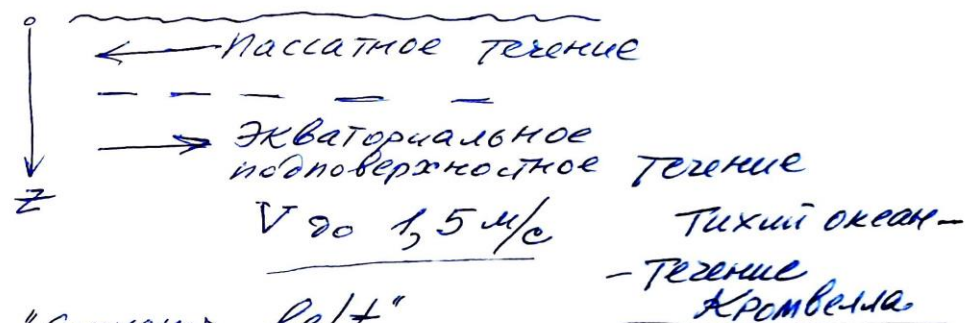 0
Пассатное течение
Экваториальное
подповерхностное течение
Z
V до 1,5 м/с
Тихий океан -
- Течение
Кромвелла
belt"